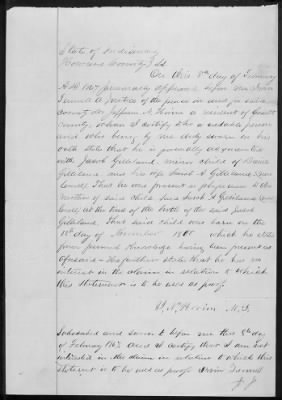 State of
County Ss
On this 8th day of February
A.D. 1867 personally appeared before me
a justice of the peace in and for said
county Dr. a resident of
County, whom I certify to be a reliable person
and who being by me duly sworn on his
oath states that he is personally acquainted
with Jacob Gilleland, minor child of
Gilleland and his wife Sarah A Gilleland
That he was present as physician to the
mother of said child Sarah A Gilleland
at the time of the birth of the said Jacob
Gilleland. That said child was born on the
18th day of November which he states
from personal knowledge having been present as
aforesaid. He further states that he has no
interest in the claim in relation to which
this statement is to be used as proof.
M.D.
Subscribed and sworn to before me this 8th day
of February 1867 and I certify that I am not
interested in the claim in relation to which this
statement is to be used as proof.
J.P.